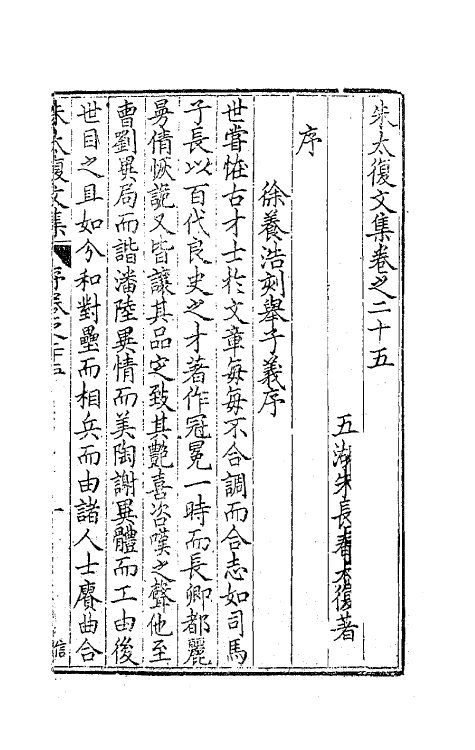 朱太復文集卷之二十五
五湖朱長春太復著
序
徐養浩刻舉子義序
世嘗恠古才士於文章每每不合調而合志如司馬
子長以百代良史之才著作冠冕一時而長卿都麗
曼倩恢詭又皆讓其品定致其艷喜咨嘆之聲他至
曹劉異局而諧潘陸異情而美陶謝異體而工由後
世目之且如今和對壘而相兵而由諸人士賡曲合
朱太復文集
序卷之二十五
一